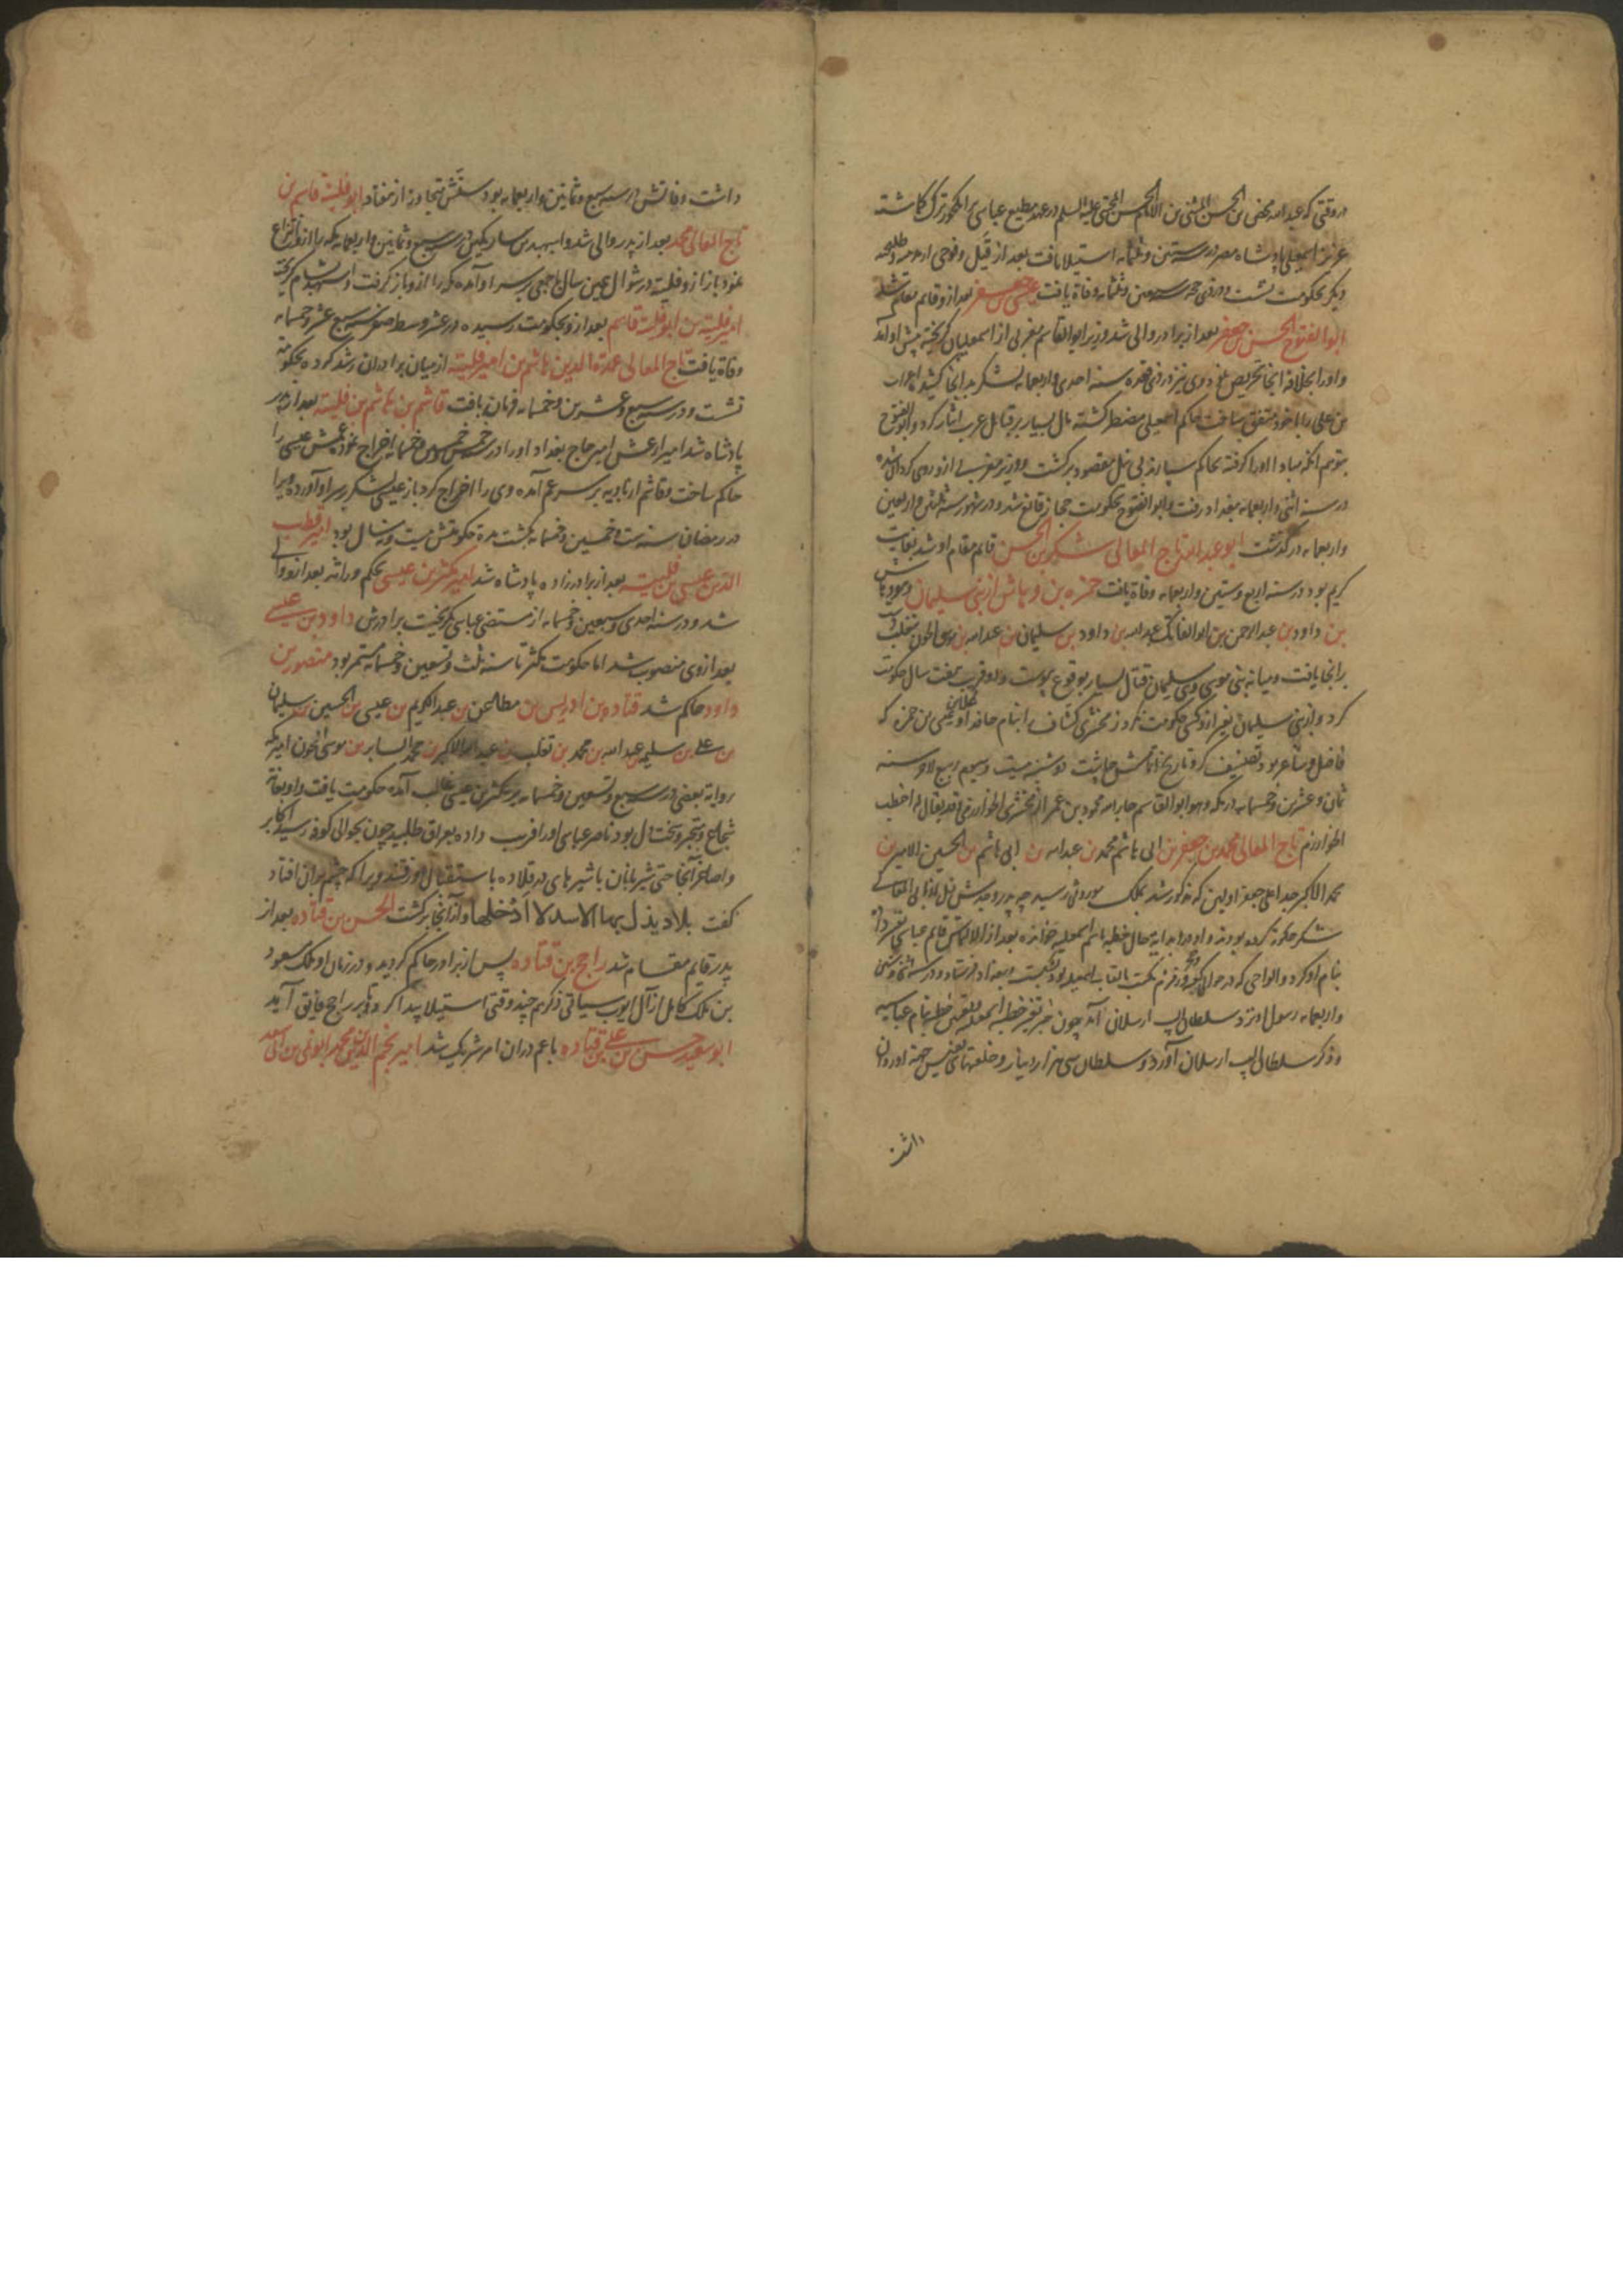 در وقتی که عبدالله محض بن الحسن المثنی بن الامام الحسن المجتبی علیه السلم در عهد مطیع عباسی بر انکحور ترک گماشته
عزیز اسمعیلی پادشاه مصر در سنه ستین و ثلثمایه استیلا یافت بعد از قتل و فوحی
دیگر بحکومت نشست و در ذی حجه سبعین و ثلثمایه وفاة یافت عیسی بن جعفر بعد از و قایم مقام شد
ابوالفتوح الحسن بن جعفر بعد از برادر والی شد و وزیر ابوالقاسم مغربی از اسمعیلیان گریخته پیش او آمد
و او را بخلافه انجا تحریص نمود وی نیز در ذی قعده سنه احدی و اربعمایه لشکر بدانجا کشید و اعراب
بن علی را با خود متفق ساخت حاکم اسمعیلی مضطر کشته مال بسیار بر قبائل عرب ایثار کرد و ابوالفتوح
بتوهم آنکه مبادا او را گرفته بحاکم سپارند بی نیل مقصود برگشت و وزیر مغربی از و روی کردان شده
در سنه اثنی و اربعمایه ببغداد رفت و ابوالفتوح بحکومت حجاز قانع شد و در شهور سنه ثلثین و اربعین
و اربعمایه در گذشت ابو عبدالله تاج المعالی شکر بن الحسن قائم مقام او شد بغایت
کریم بود در سنه اربع و ستین و اربعمایه وفاة یافت حمزه بن وهاس از بنی سلیمان
بن داود بن عبدالرحمن بن ابوالفاتک عبدالله بن داود بن سلیمان بن عبدالله بن موسی الجون
برانجا یافت و میانه بنی موسی و بنی سلیمان قتال بسیار بوقوع پیوست و او قریب هفت سال حکومت
کرد و از بنی سلیمان بغیر از و کسی حکومت نکرد زمخشری کشاف بنام عیسی بن حمزه که
فاضل و شاعر بود تصنیف کرد و تاریخ اتمامش چاشت دوشنبه بیست و سیوم ربیع الاول سنه
ثمان و عشرین و خمسمایه در مکه و هو ابوالقاسم جارالله محمود بن عمر الزمخشری الخوارزمی و قد یقال له اخطب
الخوارزم تاج المعالی محمد بن جعفر بن ابی هاشم محمد بن عبدالله بن ابی هاشم بن الحسین الامیر بن
محمد الاکبر جد اعلی جعفر اولین که مذکور شد بملک موروثی رسید چه پدر و جدش قبل از ابی المعالی
شکر حکومة کرده بودند و او در ابدایة حال خطبه باسم اسمعیلیه خوانده بعد از ان قایم عباسی
بنام او کرد و الواحی که در حوالی کعبه و زمزم بالقاب اسمعیلیه بود شکست و ببغداد فرستاد و در
و اربعمایه رسول او نزد سلطان الپ ارسلان آمد چون خبر تغییر خطبه اسمعیلیه خطبه بنام عباسیه
و ذکر سلطان الپ ارسلان آورد و سلطان سی هزار دینار و خلعتهای نفیس جهة او روان
داشت
داشت وفاتش در سنه سبع و ثمانین و اربعمایه بود سنش متجاوز از هفتاد ابو فلیته قاسم بن
تاج المعالی محمد بعد از پدر والی شد و اسپهبد بن ساریکین در سنه سبع و ثمانین و اربعمایه مکه را از وی انتزاع
نمود باز ابو فلیته در شوال همین سال جمعی بر سر او آمده مکه را از و باز گرفت و اسپهبد بشام گریخته
امیر فلیته بن ابو فلیته قاسم بعد از و بحکومت رسیده در عشر وسط صفر سنه سبع عشر و خمسمایه
وفاة یافت تاج المعالی عمدة الدین هاشم بن امیر فلیته از میان برادران رشد کرده بحکومت
نشست و در سنه سبع و عشرین و خمسمایه فرمان یافت قاسم بن هاشم بن فلیته بعد از پدر
پادشاه شد امیر ارغش امیر حاج بغداد او را در سنه خمس و خمسین و خمسمایه اخراج نموده عمش عیسی را
حاکم ساخت و قاسم از بادیه بر سر عم آمده وی را اخراج کرد باز عیسی لشکر بر سر او آورده ویرا
در رمضان سنه ست و خمسین و خمسمایه بکشت مدة حکومتش بیست و نه سال بود امیر قطب
الدین عیسی بن فلیته بعد از برادر زاده پادشاه شد امیر مکثر بن عیسی بحکم وراثه بعد از و والی
شد و در سنه احدی و سبعین و خمسمایه از مستضی عباسی گریخت برادرش داود بن عیسی
بعد از وی منصوب شد اما حکومت مکثر تا سنه ثلث و تسعین و خمسمایه مستمر بود منصور بن
داود حاکم شد قتاده بن ادریس بن مطاعن بن عبدالکریم بن عیسی بن الحسین بن سلیمان
بن علی بن سلیم بن عبدالله بن محمد بن ثعلب بن عبدالله الاکبر بن محمد الثایر بن موسی الجون امیر مکه
بروایة بعضی در سنه سبع و تسعین و خمسمایه بر مکثر بن عیسی غالب آمده حکومت یافت و او بغایة
شجاع و متجبر و سختدل بود ناصر عباسی او را فریب داده بعراق طلبید چون بحوالی کوفه رسید اکابر
و اصاغر آنجا حتی شیربانان با شیرهای در قلاده باستقبال او رفتند ویرا که چشم بران افتاد
گفت بلاد یذل بها الاسد لا ادخلها و از آنجا برگشت الحسن بن قتاده بعد از
پدر قایم مقام شد راجح بن قتاده پس از برادر حاکم گردید و در زمان او ملک مسعود
بن ملک کامل از آل ایوب سیاتی ذکرهم چند وقتی استیلا پیدا کرد و باز راجح فایق آمد
ابو سعید حسن بن علی بن قتاده با عم دران امر شریک شد امیر نجم الدین محمد ابو نمی بن ابی سعد